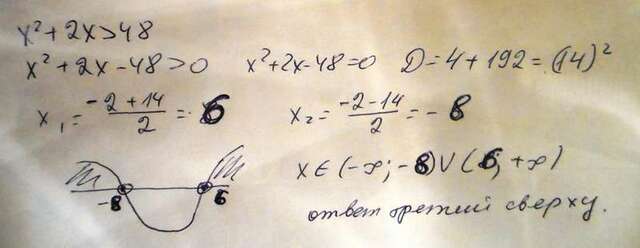 x² + 2x > 48
x² + 2x - 48 > 0   x² + 2x - 48 = 0   D = 4 + 192 = (14)²
x₁ = (-2 + 14)/2 = 6   x₂ = (-2 - 14)/2 = -8
x ∈ (-∞; -8) ∪ (6; +∞)
-8   6
ответ третий сверху.